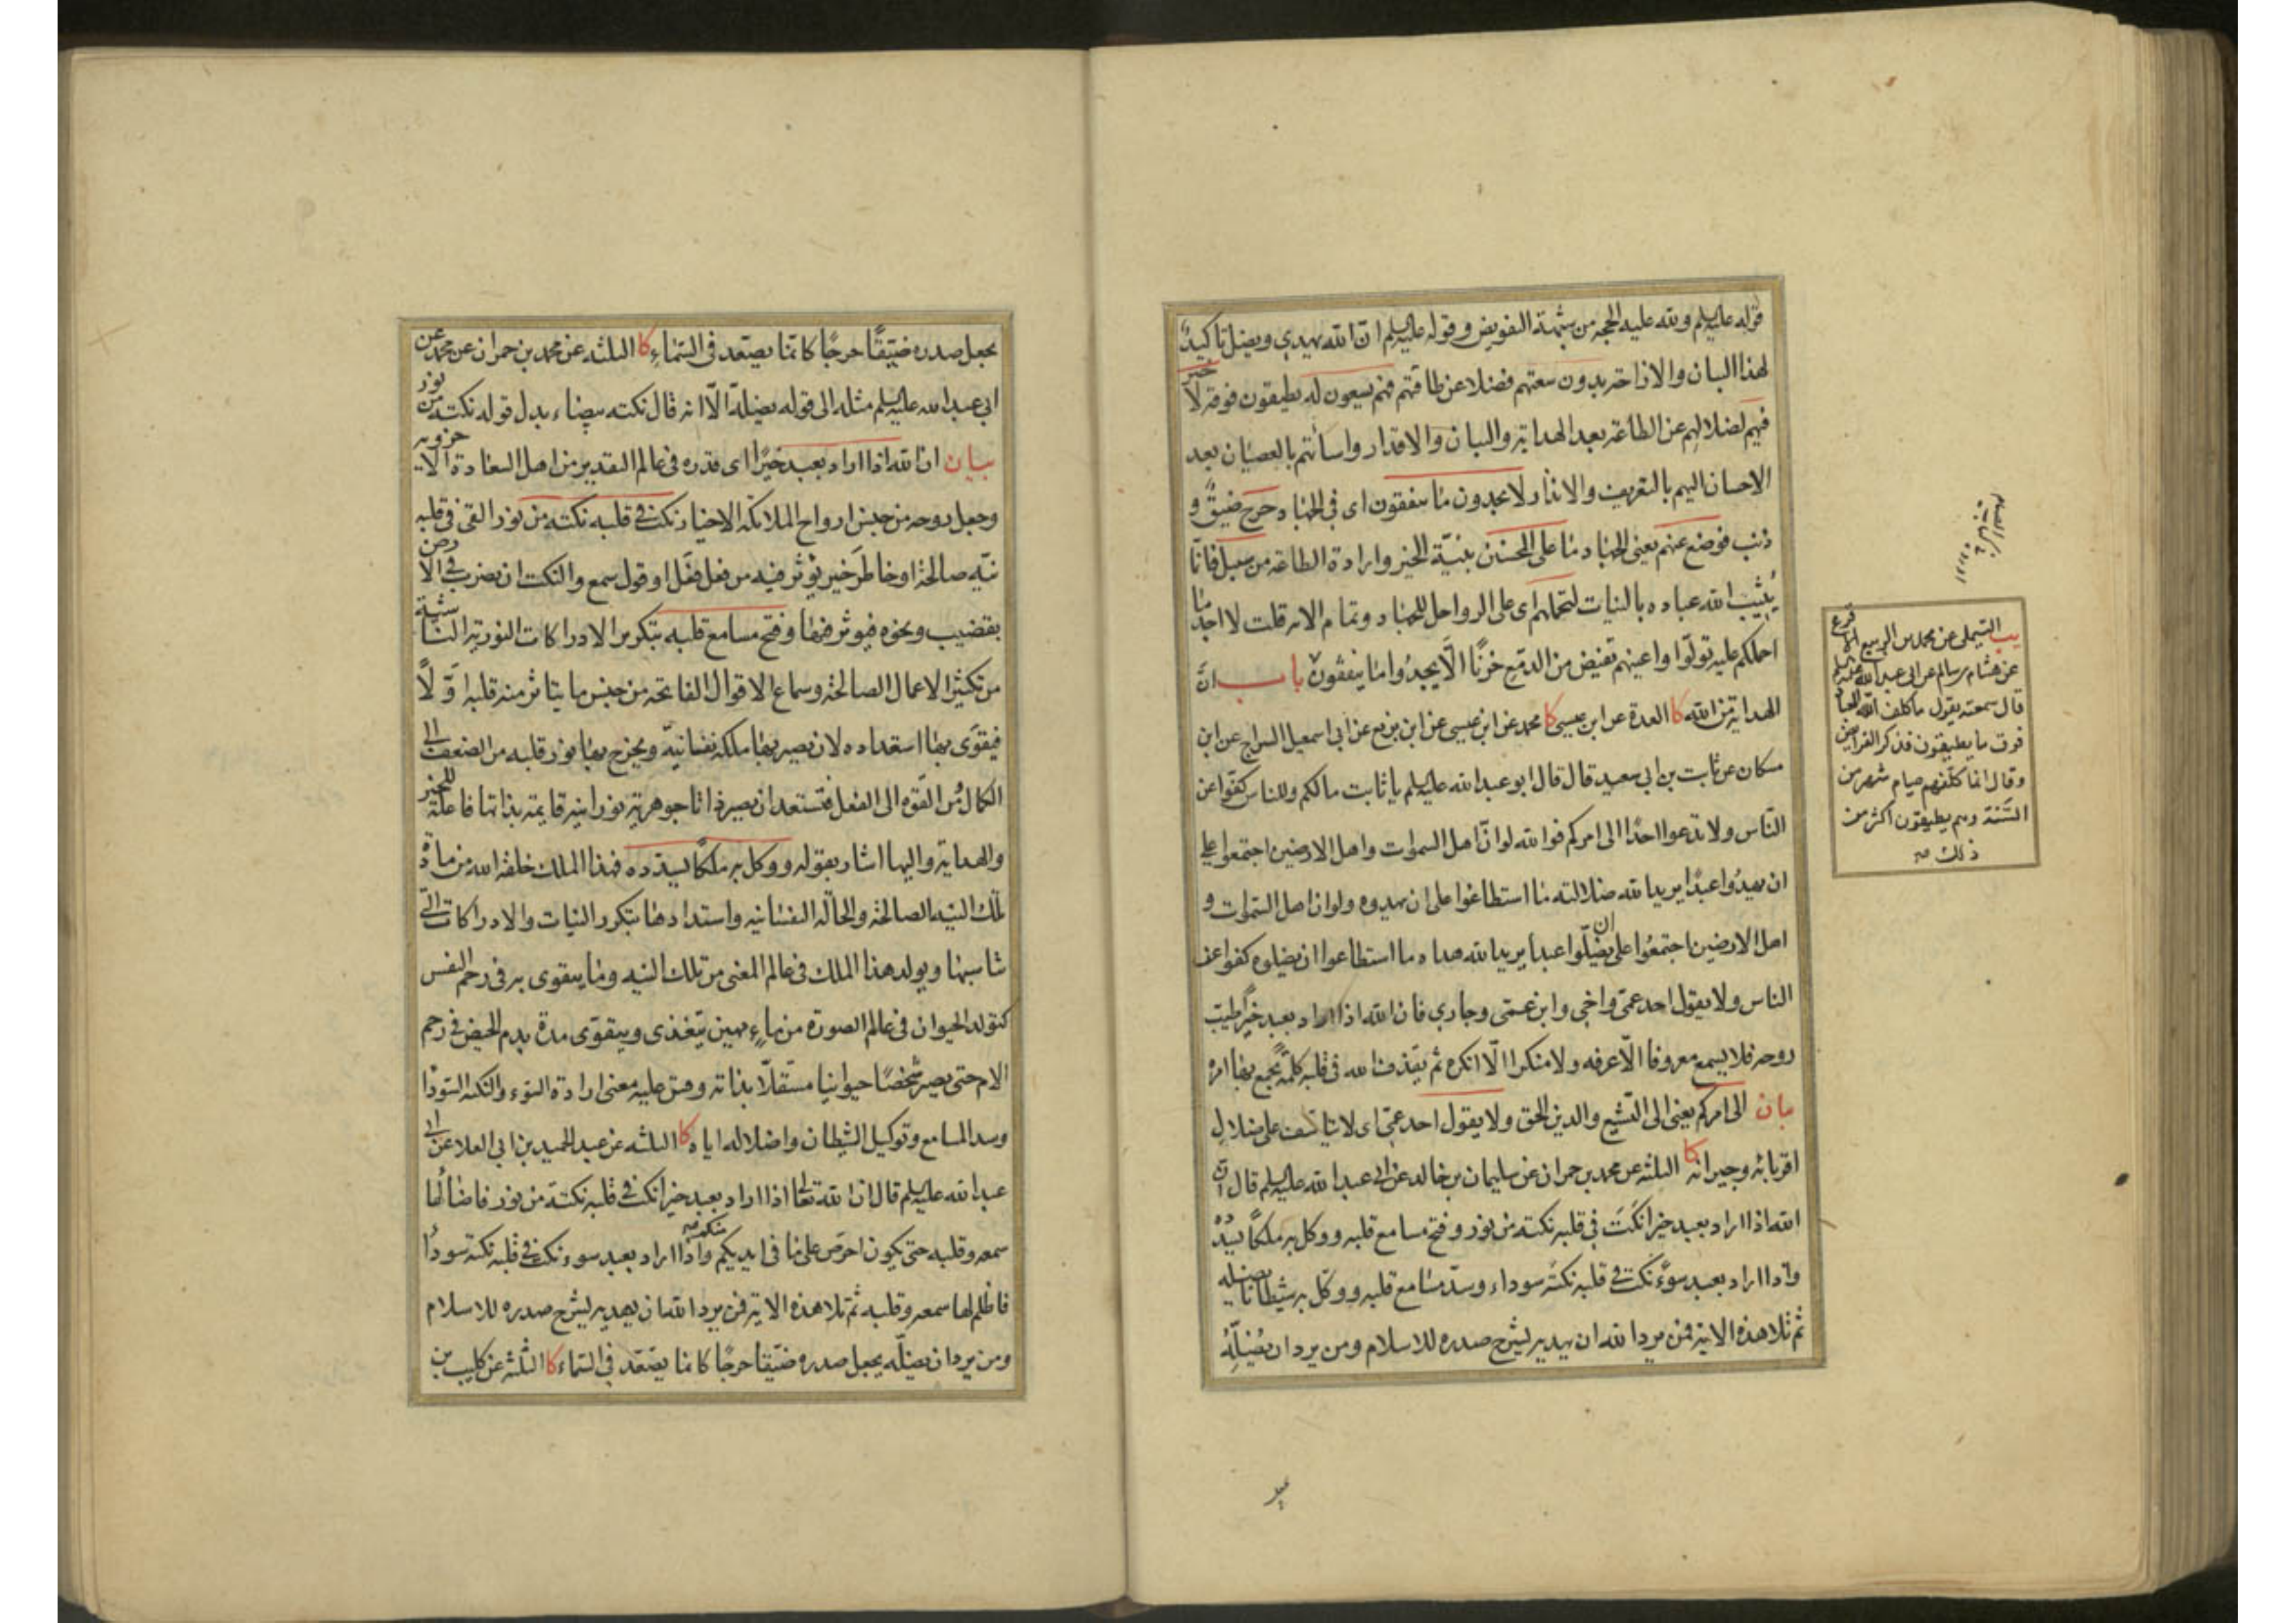 قوله عليه السلم ولله عليه الحجه من شبهة التفويض وقوله عليه السلم ان الله يهدي ويضل تاكيدٌ
لهذا البيان والا فاخر بدون سعتهم فضلا عن طاقتهم فهم يسعون له يطيقون فوقه لا خير
فيهم لضلالهم عن الطاعة بعد الهداية والبيان والاقدار واسائتهم بالعصيان بعد
الاحسان اليهم بالتعريف والانذار لا يجدون ما ينفقون اى فى الجهاد حرج ضيقٌ و
ذنب فوضع عنهم يعنى الجهاد ما على المحسنين بنيّة الخير وارادة الطاعة من سبيل فانّما
يُثيب الله عباده بالنيات لتحملهم اى على الرواحل للجهاد وتمام الاية قلت لا اجد ما
احملكم عليه تولّوا واعينهم تفيض من الدمع حزنًا الّا يجدُوا ما ينفقون باب انّ
الهداية من الله كا العدة عن ابن عيسى كا محمد عن ابن عيسى عن ابن بزيع عن ابى اسمعيل السراج عن ابن
مسكان عن ثابت بن ابى سعيد قال قال ابو عبد الله عليه السلم يا ثابت مالكم وللناس كفّوا عن
النّاس ولا تدعوا احدًا الى امركم فوالله لو انّ اهل السموات واهل الارضين اجتمعوا على
ان يهدُوا عبدًا يريد الله ضلالته ما استطاعوا على ان يهدوه ولو ان اهل السّموات و
اهل الارضين اجتمعُوا على ان يضلّوا عبدا يريد الله هداه ما استطاعوا ان يضلوه كفوا عن
الناس ولا يقول احد عمّى واخى وابن عمّى وجارى فان الله اذا اراد بعبد خيرًا طيّب
روحه فلا يسمع معروفا الّا عرفه ولا منكرا الّا انكره ثم يقذف الله فى قلبه كلمةً يجمع بها امره
بيان الى امركم يعنى الى التّشيع والدين الحق ولا يقول احد عمّى اى لا يتاسف على ضلال
اقربائه وجيرانه كا الثلثه عن محمد بن حمران عن سليمان بن خالد عن ابى عبد الله عليه السلم قال انّ
الله اذا اراد بعبد خيرا نكَتَ فى قلبه نكتة من نور وفتح مسامع قلبه ووكل به ملكًا يسدّده
واذا اراد بعبد سوءً نكت فى قلبه نكتةً سوداء وسدّ مسامع قلبه ووكّل به شيطانا يضله
ثم تلا هذه الاية فمن يرد الله ان يهديه يشرح صدره للاسلام ومن يرد ان يُضِلَّهُ
يب التيملى عن محمد بن الربيع الاقرع
عن هشام بن سالم عن ابى عبد الله عليه السلم
قال سمعته يقول ما كلف الله العباد
فوق ما يطيقون فذكر الفرايض
وقال انما كلفهم صيام شهر من
السّنة وهم يطيقون اكثر من
ذلك
يجعل صدره ضيّقًا حرجًا كانّما يصّعّد فى السّماءِ كا الثلثه عن محمد بن حمران عن محمد عن
ابى عبد الله عليه السلم مثله الى قوله يضلّه الّا انه قال نكته بيضاء بدل قوله نكتة من نور
بيان ان الله اذا اراد بعبد خيرًا اى قدره فى عالم التقدير من اهل السعادة الاخروية
وجعل روحه من جنس ارواح الملائكة الاخيار نكت فى قلبه نكتة من نور القى فى قلبه
نيّه صالحة او خاطر خير يؤثر فيه من فعل فعل او قول سمع والنكت ان يضرب فى الارض
بقضيب ونحوه فيوثر فيها وفتح مسامع قلبه بتكرير الادراكات النورية الناشية
من تكثير الاعمال الصالحة وسماع الاقوال الفاتحه من جنس ما يتاثر منه قلبه اوّلاً
فيقوّى بها استعداده لان يصير بها ملكة نفسانيّه ويخرج بها نور قلبه من الضعف الى
الكمال ومن القوه الى الفعل فتستعد ان يصير ذاتا جوهرية نورانيه قايمة بذاتها فاعلة للخير
والهداية واليها اشار بقوله ووكل به ملكًا يسدّده فهذا الملك خلقه الله من مادة
تلك النيّه الصالحة والحالة النفسانيه واستدادها بتكرر النيات والادراكات التى
تناسبها ويولد هذا الملك فى عالم المعنى من تلك النيه وما يتقوى به فى رحم النفس
كتولد الحيوان فى عالم الصورة من ماءٍ مهين يتغذى ويتقوّى مدة بدم الحيض فى رحم
الام حتى يصير شخصًا حيوانيا مستقلّا بذاته وقس عليه معنى ارادة السوء والنكتة السّودا
وسد المسامع وتوكيل الشيطان واضلاله اياه كا الثلثه عن عبد الحميد بن ابى العلا عن ابى
عبد الله عليه السلم قال ان الله تعالى اذا اراد بعبد خيرا نكت فى قلبه نكتة من نور فاضاء لها
سمعه وقلبه حتى يكون احرص على ما فى ايديكم منكم واذا اراد بعبد سوء نكت فى قلبه نكتة سوداء
فاظلم لها سمعه وقلبه ثم تلا هذه الاية فمن يرد الله ان يهديه يشرح صدره للاسلام
ومن يرد ان يضلّه يجعل صدره ضيّقا حرجًا كانما يصّعّد فى السّماء كا الثلثه عن كليب بن